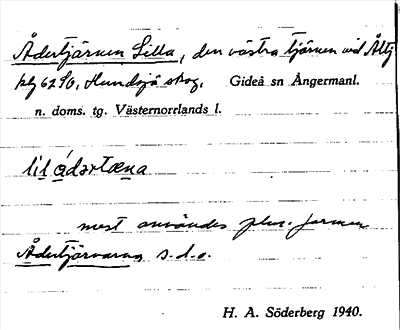 Ådertjärnen Lilla, den västra tjärnen vid Åttj
klg 62 SO, Hundsjö skog. Gideå sn Ångermanl.
n. doms. tg. Västernorrlands l.
lil ádərtæna
mest användes plur. formen
Ådertjärnarna s.d.o.
H. A. Söderberg 1940.